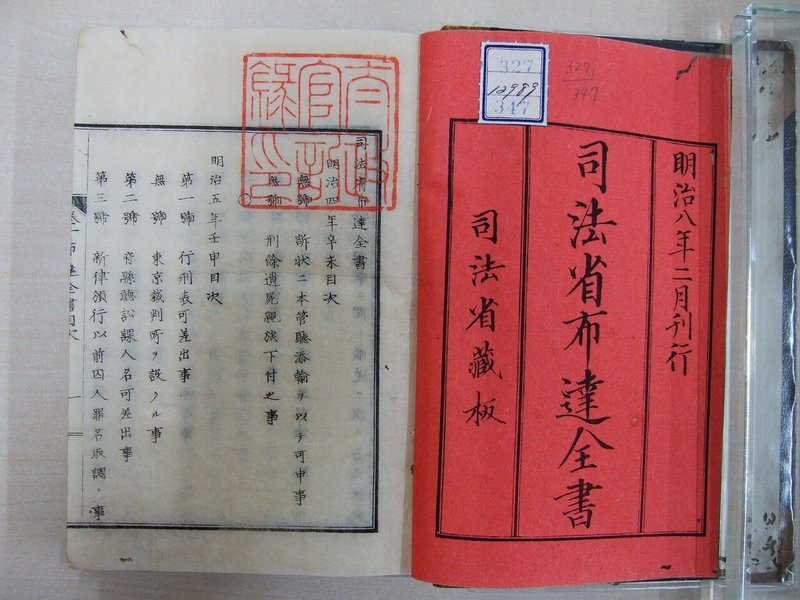 327
12989
347
327
347
明治八年二月刊行
司法省布達全書
司法省藏板
司法省布達全書
明治四年辛未目次
無號 訴狀ニ本管聽添翰ヲ以テ可申事
無號 刑餘遺屍親族下付之事
明治五年壬申目次
第一號 行刑表可差出事
無號 東京裁判所ヲ設クル事
第二號 府縣聽訟課人名可差出事
第三號 新律頒行以前囚人罪名取調ノ事